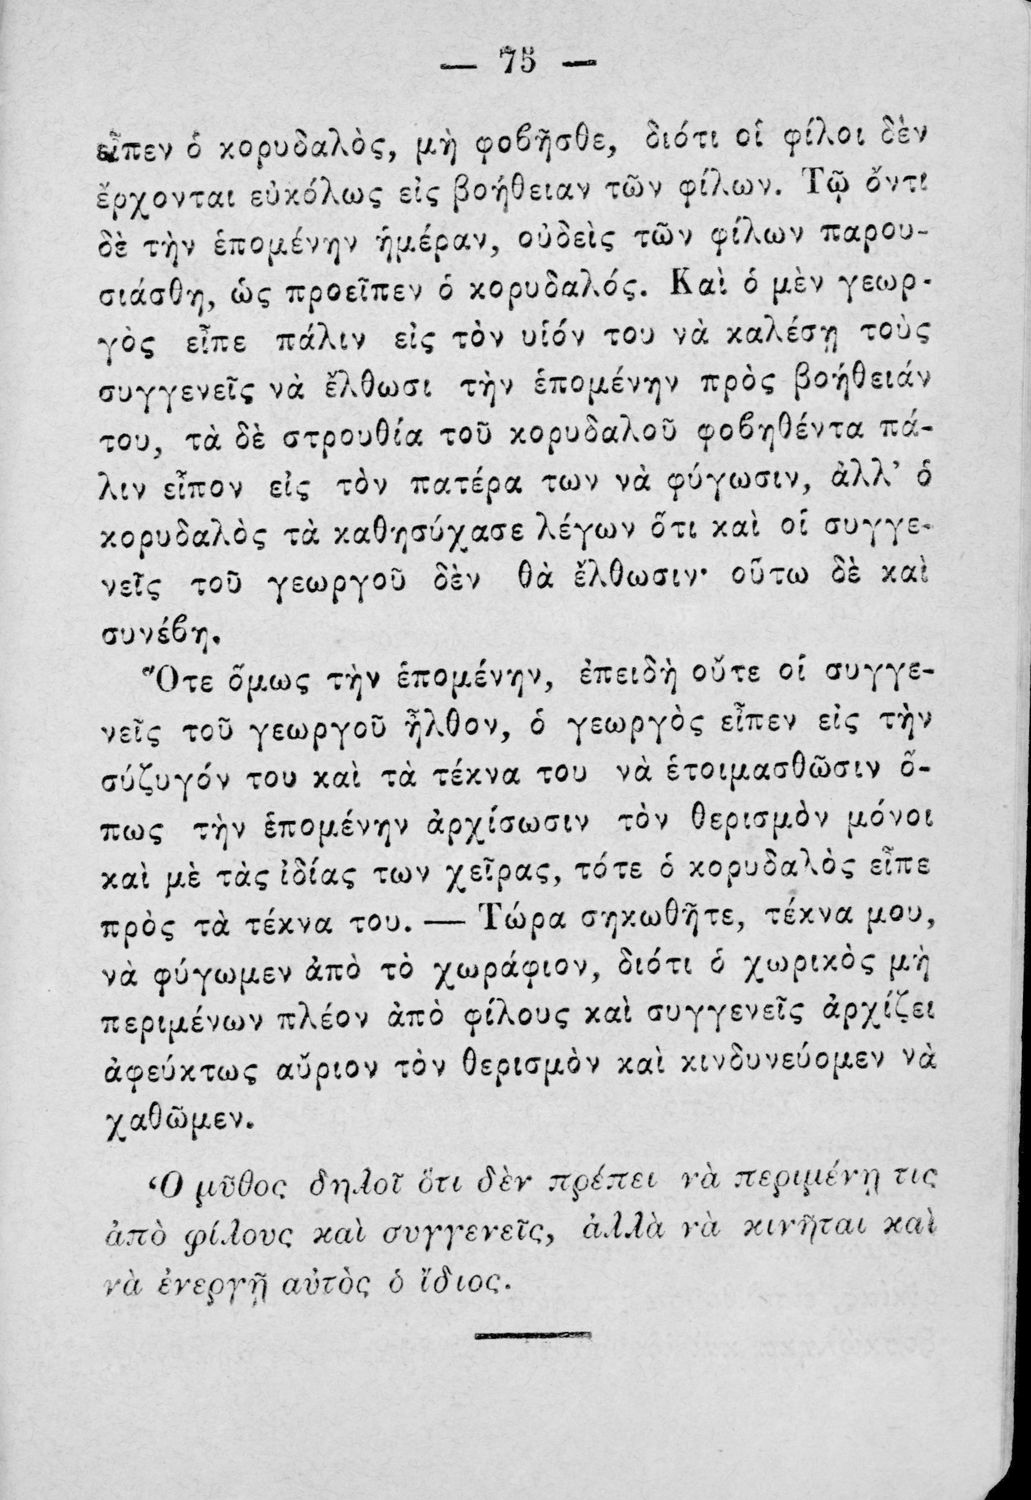 — 75 —
εἶπεν ὁ κορυδαλὸς, μὴ φοβῆσθε, διότι οἱ φίλοι δὲν
ἔρχονται εὐκόλως εἰς βοήθειαν τῶν φίλων. Τῷ ὄντι
δὲ τὴν ἑπομένην ἡμέραν, οὐδεὶς τῶν φίλων παρου-
σιάσθη, ὡς προεῖπεν ὁ κορυδαλός. Καὶ ὁ μὲν γεωρ-
γὸς εἶπε πάλιν εἰς τὸν υἱόν του νὰ καλέσῃ τοὺς
συγγενεῖς νὰ ἔλθωσι τὴν ἑπομένην πρὸς βοήθειάν
του, τὰ δὲ στρουθία τοῦ κορυδαλοῦ φοβηθέντα πά-
λιν εἶπον εἰς τὸν πατέρα των νὰ φύγωσιν, ἀλλ’ ὁ
κορυδαλὸς τὰ καθησύχασε λέγων ὅτι καὶ οἱ συγγε-
νεῖς τοῦ γεωργοῦ δὲν θὰ ἔλθωσιν· οὕτω δὲ καὶ
συνέβη.
Ὅτε ὅμως τὴν ἑπομένην, ἐπειδὴ οὔτε οἱ συγγε-
νεῖς τοῦ γεωργοῦ ἦλθον, ὁ γεωργὸς εἶπεν εἰς τὴν
σύζυγόν του καὶ τὰ τέκνα του νὰ ἑτοιμασθῶσιν ὅ-
πως τὴν ἑπομένην ἀρχίσωσιν τὸν θερισμὸν μόνοι
καὶ μὲ τὰς ἰδίας των χεῖρας, τότε ὁ κορυδαλὸς εἶπε
πρὸς τὰ τέκνα του. — Τώρα σηκωθῆτε, τέκνα μου,
νὰ φύγωμεν ἀπὸ τὸ χωράφιον, διότι ὁ χωρικὸς μὴ
περιμένων πλέον ἀπὸ φίλους καὶ συγγενεῖς ἀρχίζει
ἀφεύκτως αὔριον τὸν θερισμὸν καὶ κινδυνεύομεν νὰ
χαθῶμεν.
Ὁ μῦθος δηλοῖ ὅτι δὲν πρέπει νὰ περιμένῃ τις
ἀπὸ φίλους καὶ συγγενεῖς, ἀλλὰ νὰ κινῆται καὶ
νὰ ἐνεργῇ αὐτὸς ὁ ἴδιος.